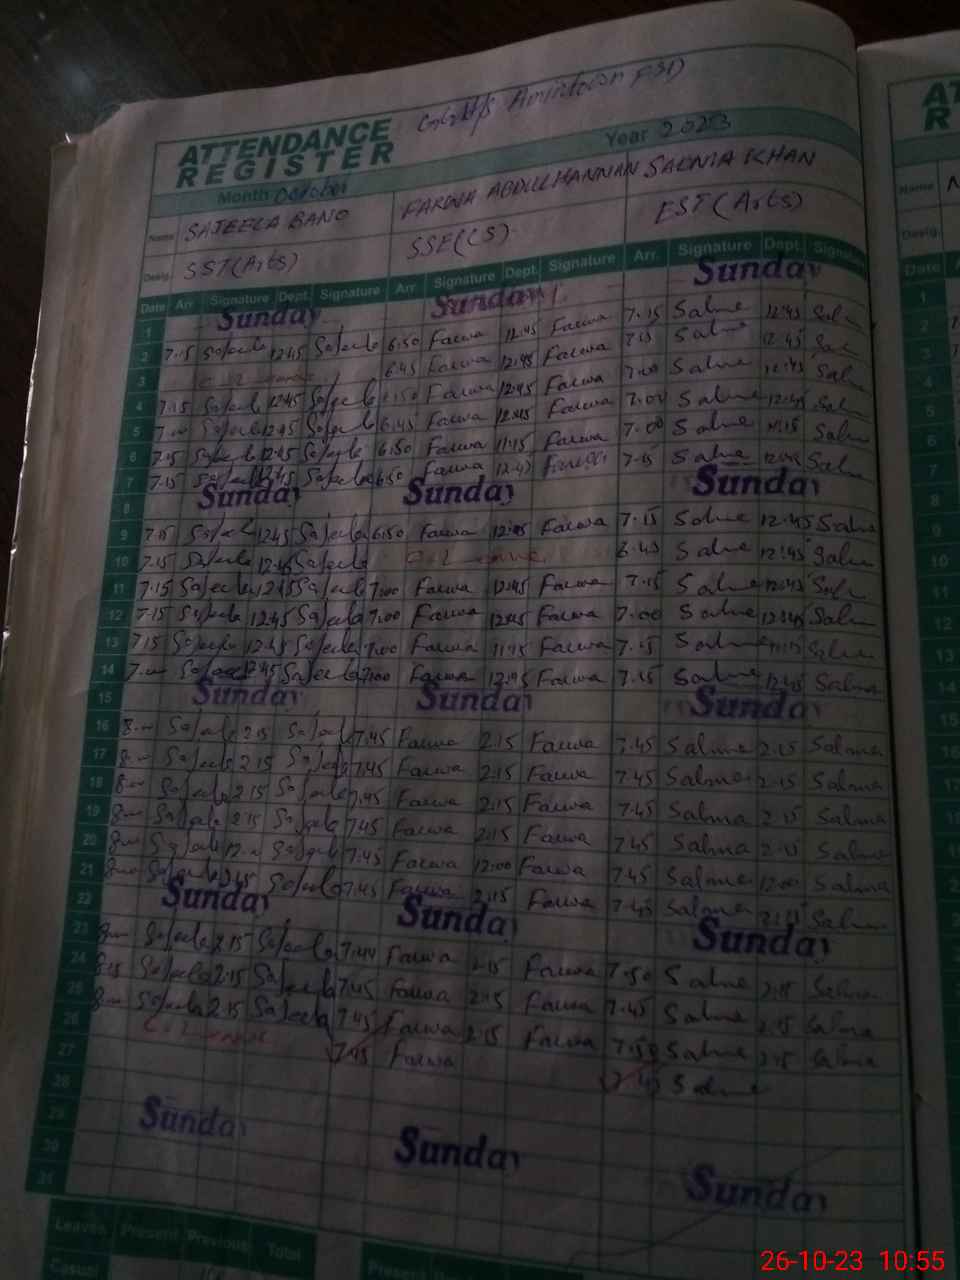 ATTENDANCE
REGISTER
Month October Year 2023
Name SAJEELA BANO FARWA ABDULHANNAN SALMA KHAN
Desig. SST(Arts) SSE(CS) EST(Arts)
Date Arr. Signature Dept. Signature Arr. Signature Dept. Signature Arr. Signature Dept. Signature
1 Sunday Sunday Sunday
2 7.15 Sajeela 12.45 Sajeela 6.50 Farwa 12.45 Farwa 7.15 Salma 12.45 Salma
3 6.45 Farwa 12.45 Farwa 7.15 Salma 12.45 Salma
4 7.15 Sajeela 12.45 Sajeela Farwa 12.45 Farwa 7.00 Salma 12.45 Salma
5 7.00 Sajeela 12.45 Sajeela 6.45 Farwa 12.45 Farwa 7.00 Salma 12.45 Salma
6 7.15 Sajeela Sajeela 6.50 Farwa 11.15 Farwa 7.00 Salma 11.15 Salma
7 7.15 Sajeela 12.45 Sajeela 6.50 Farwa 12.45 Farwa 7.15 Salma 12.45 Salma
8 Sunday Sunday Sunday
9 7.15 Sajeela 12.45 Sajeela 6.50 Farwa 12.45 Farwa 7.15 Salma 12.45 Salma
10 7.15 Sajeela 12.45 Sajeela 6.45 Salma 12.45 Salma
11 7.15 Sajeela 12.45 Sajeela 7.00 Farwa 12.45 Farwa 7.15 Salma 12.45 Salma
12 7.15 Sajeela 12.45 Sajeela 7.00 Farwa 12.45 Farwa 7.00 Salma 12.45 Salma
13 7.15 Sajeela 12.45 Sajeela 7.00 Farwa 11.15 Farwa 7.15 Salma 11.15 Salma
14 7.00 Sajeela 12.45 Sajeela 7.00 Farwa 12.45 Farwa 7.15 Salma 12.45 Salma
15 Sunday Sunday Sunday
16 8.00 Sajeela 2.15 Sajeela 7.45 Farwa 2.15 Farwa 7.45 Salma 2.15 Salma
17 8.00 Sajeela 2.15 Sajeela 7.45 Farwa 2.15 Farwa 7.45 Salma 2.15 Salma
18 8.00 Sajeela 2.15 Sajeela 7.45 Farwa 2.15 Farwa 7.45 Salma 2.15 Salma
19 8.00 Sajeela 2.15 Sajeela 7.45 Farwa 2.15 Farwa 7.45 Salma 2.15 Salma
20 8.00 Sajeela 12.00 Sajeela 7.45 Farwa 12.00 Farwa 7.45 Salma 12.00 Salma
21 8.00 Sajeela 2.15 Sajeela 7.45 Farwa 2.15 Farwa 7.45 Salma 2.15 Salma
22 Sunday Sunday Sunday
23 8.00 Sajeela 2.15 Sajeela 7.44 Farwa 2.15 Farwa 7.50 Salma 2.15 Salma
24 8.15 Sajeela 2.15 Sajeela 7.45 Farwa 2.15 Farwa 7.45 Salma 2.15 Salma
25 8.00 Sajeela 2.15 Sajeela 7.45 Farwa 2.15 Farwa 7.50 Salma 2.15 Salma
26 7.45 Farwa 7.45 Salma
27
28
29 Sunday Sunday Sunday
30
31
Leaves Present Previous Total Present
Casual
26-10-23 10:55